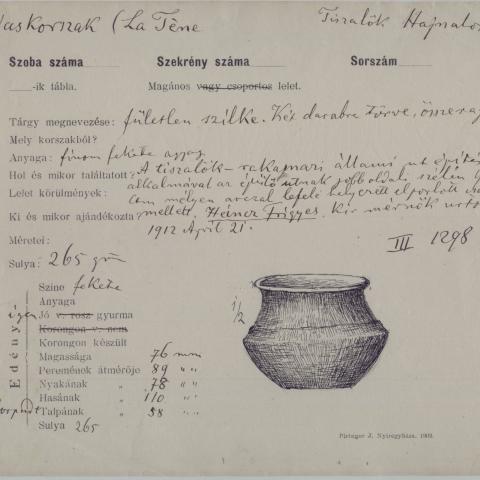 Vaskorszak (La Tène
Tiszalök Hajnalos
Szoba száma
Szekrény száma
Sorszám
-ik tábla.
Magános vagy csoportos lelet.
Tárgy megnevezése: fületlen szilke. Két darabra törve,
Mely korszakból?
Anyaga: finom fekete agyag.
Hol és mikor találtatott? A tiszalök-rakamazi állami út építés
Lelet körülmények: alkalmával az épülő útnak jobb oldali szélén
cm mélyen arczal lefelé helyezett elporlott
Ki és mikor ajándékozta: mellett, Heincz Frigyes. Kir mérnök
1912 April 21.
Méretei:
III 1298
Sulya: 265 gr
Edény
Szine fekete
Anyaga
igen Jó v. rosz gyurma
Korongon v. nem
Korongon készült
Magassága 76 mm
Peremének átmérője 89 " "
Nyakának " 78 " "
Hasának " 110 " "
Talpának " 58 " "
Sulya 265
1/2
Piringer J. Nyiregyháza. 1909.